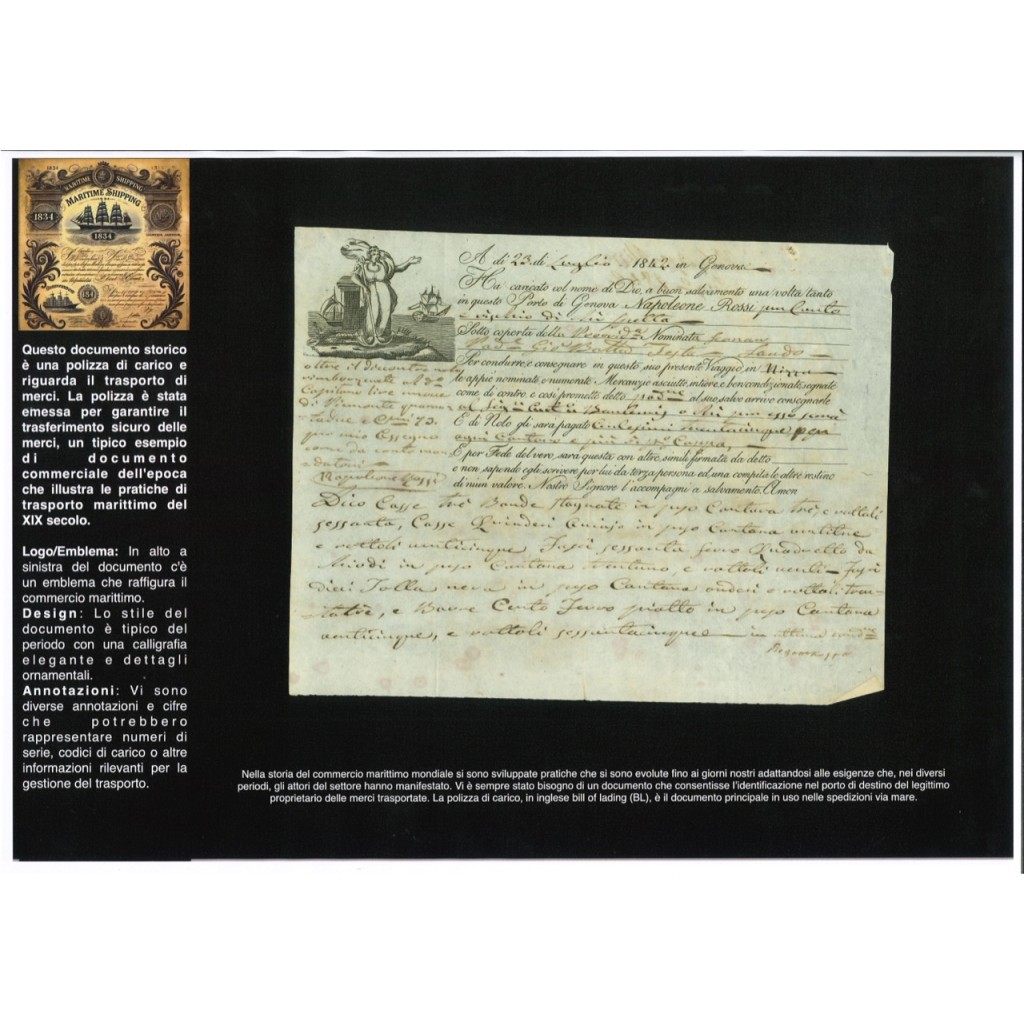 MARITIME SHIPPING
MARITIME SHIPPING
1834
1834
Questo documento storico
è una polizza di carico e
riguarda il trasporto di
merci. La polizza è stata
emessa per garantire il
trasferimento sicuro delle
merci, un tipico esempio
di documento
commerciale dell'epoca
che illustra le pratiche di
trasporto marittimo del
XIX secolo.
Logo/Emblema: In alto a
sinistra del documento c'è
un emblema che raffigura il
commercio marittimo.
Design: Lo stile del
documento è tipico del
periodo con una calligrafia
elegante e dettagli
ornamentali.
Annotazioni: Vi sono
diverse annotazioni e cifre
che potrebbero
rappresentare numeri di
serie, codici di carico o altre
informazioni rilevanti per la
gestione del trasporto.
A di 23 di Luglio 1842 in Genova
Ha caricato col nome di Dio, a buon salvamento una volta tanto
in questo Porto di Genova Napoleone Rossi per Conto
e rischio di chi spetta
Sotto coperta della Nominata
Per condurre, e consegnare in questo suo presente Viaggio in Nizza
le appiè nominate, e numerate Mercanzie asciutte, intiere, e ben condizionate, segnate
come di contro, e così promette detto al suo salvo arrivo consegnarle
al o chi per esso sarà
E di Nolo gli sarà pagato Centesimi trentacinque per
ogni Cantaro e più di
E per Fede del vero, sarà questa con altre simili firmata da detto
e non sapendo egli scrivere per lui da terza persona ed, una compita le altre restino
di niun valore. Nostro Signore l'accompagni a salvamento, Amen
oltre il
rimborserete al
Capitano lire nuove
di Piemonte
e 73.
per mio
come da conto
Napoleone Rossi
Dico Casse tre Bande stagnate in peso Cantara tre, e rottoli
sessanta, Casse Quindeci in peso Cantara
e rottoli venticinque, Fasci sessanta ferro Quadretto da
Chiodi in peso Cantara trentuno, e rottoli venti - Fasci
dieci Tolla nera in peso Cantara undeci e rottoli
e Barre Cento Ferro piatto in peso Cantara
venticinque, e rottoli sessantacinque
Nella storia del commercio marittimo mondiale si sono sviluppate pratiche che si sono evolute fino ai giorni nostri adattandosi alle esigenze che, nei diversi
periodi, gli attori del settore hanno manifestato. Vi è sempre stato bisogno di un documento che consentisse l'identificazione nel porto di destino del legittimo
proprietario delle merci trasportate. La polizza di carico, in inglese bill of lading (BL), è il documento principale in uso nelle spedizioni via mare.